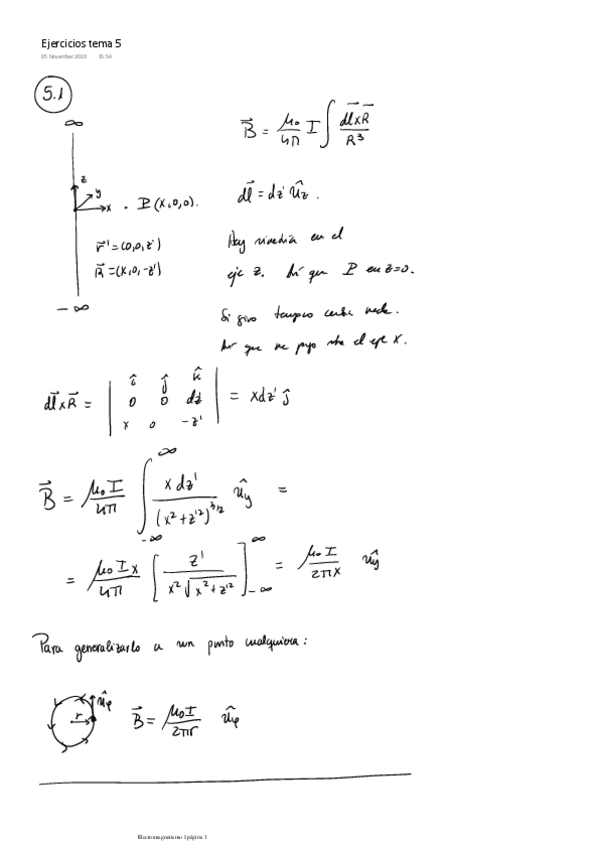 Ejercicios tema 5
05 November 2019 15:54
5.1
∞
z
y
x
. P(x,0,0).
r⃗' = (0,0,z')
R⃗ = (x,0,-z')
-∞
B⃗ = μ₀/4π I ∫ dl⃗×R⃗/R³
dl⃗ = dz' ûz .
Hay simetría en el
eje z. Así que P en z=0.
Si giro tampoco cambia nada.
Así que me pongo sobre el eje x.
dl⃗×R⃗ = | î ĵ k̂ |
| 0 0 dz' |
| x 0 -z' | = xdz' ĵ
B⃗ = μ₀I/4π ∫_{-∞}^{∞} x dz'/(x²+z'²)^{3/2} ûy =
= μ₀Ix/4π [ z'/(x²√(x²+z'²)) ]_{-∞}^{∞} = μ₀I/2πx ûy
Para generalizarlo a un punto cualquiera:
r ûφ B⃗ = μ₀I/2πr ûφ
Electromagnetismo I página 1